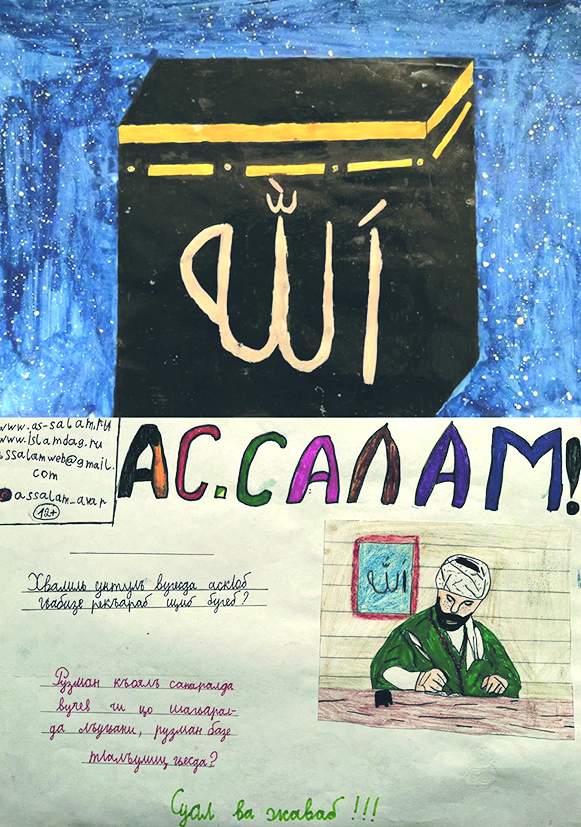 الله
www.as-salam.ru
www.islamdag.ru
ssalamweb@gmail.
com
assalam_avar
12+
АС.САЛАМ!
Хвалиль унтулъ вугеда аскӀоб
гьабизе рекъараб щиб бугеб?
Рузман къоялъ сапаралда
вугев чи цо шагьарал-
да лъугьани, рузман базе
тӀалъулищ гьесда?
الله
Суал ва жаваб !!!